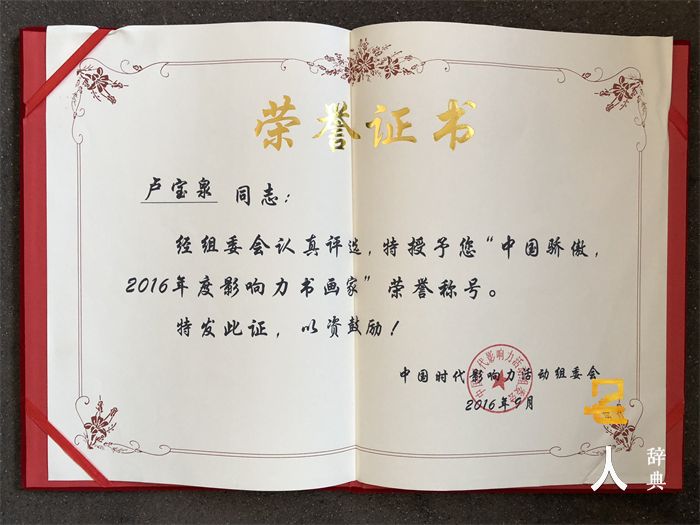 荣誉证书
卢宝泉 同志：
经组委会认真评选，特授予您“中国骄傲，
2016年度影响力书画家”荣誉称号。
特发此证，以资鼓励！
中国时代影响力活动组委会
2016年9月
中国时代影响力活动组委会
人
辞典